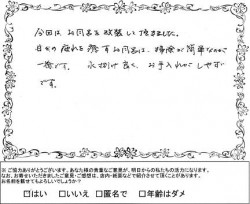 今回は、お風呂を改装して頂きました。
日々の疲れを癒すお風呂は、掃除が簡単なのが
一番です。水はけも良く、お手入れがしやす
です。
※ご協力ありがとうございます。あなた様の貴重なご意見が、明日からの私たちの活力になります。
なお、お寄せいただきましたご意見・ご感想は、店内・紙面などで紹介させて頂くことがあります。
お名前を載せてもよろしいでしょうか?
□はい □いいえ □匿名で □年齢はダメ